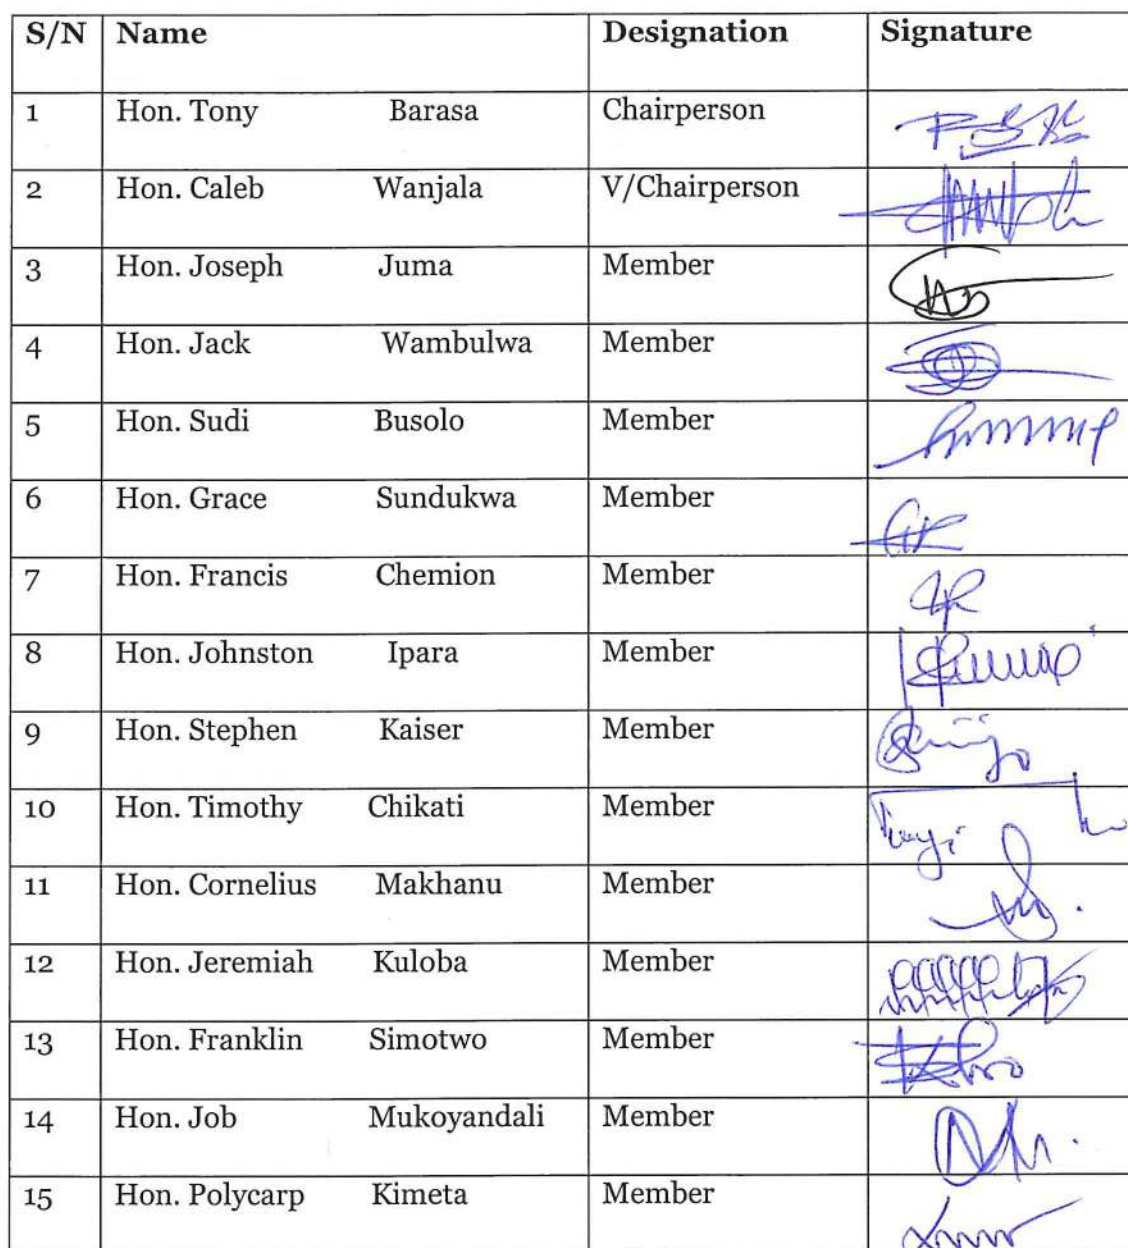 S/N Name Designation Signature
1 Hon. Tony Barasa Chairperson
2 Hon. Caleb Wanjala V/Chairperson
3 Hon. Joseph Juma Member
4 Hon. Jack Wambulwa Member
5 Hon. Sudi Busolo Member
6 Hon. Grace Sundukwa Member
7 Hon. Francis Chemion Member
8 Hon. Johnston Ipara Member
9 Hon. Stephen Kaiser Member
10 Hon. Timothy Chikati Member
11 Hon. Cornelius Makhanu Member
12 Hon. Jeremiah Kuloba Member
13 Hon. Franklin Simotwo Member
14 Hon. Job Mukoyandali Member
15 Hon. Polycarp Kimeta Member